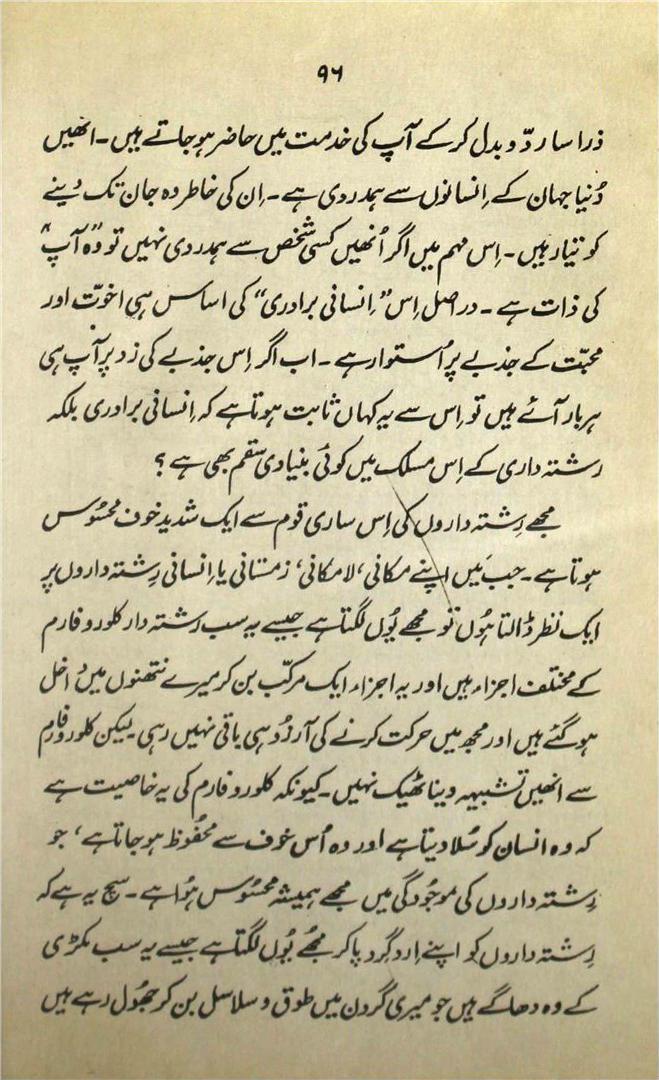 ۹۶
ذرا سا ردّ و بدل کر کے آپ کی خدمت میں حاضر ہو جاتے ہیں۔ انھیں
دُنیا جہان کے اِنسانوں سے ہمدردی ہے۔ اِن کی خاطر وہ جان تک دینے
کو تیار ہیں۔ اِس مہم میں اگر اُنھیں کسی شخص سے ہمدردی نہیں تو وہ "آپ"
کی ذات ہے۔ دراصل اِس "اِنسانی برادری" کی اساس ہی اخوّت اور
محبّت کے جذبے پر اُستوار ہے۔ اب اگر اِس جذبے کی زد پر آپ ہی
ہر بار آئے ہیں تو اِس سے یہ کہاں ثابت ہوتا ہے کہ اِنسانی برادری بلکہ
رشتہ داری کے اِس مسلک میں کوئی بنیادی سقم بھی ہے؟
مجھے رِشتہ داروں کی اِس ساری قوم سے ایک شدید خوف محسُوس
ہوتا ہے۔ جب مَیں اپنے مکانی، لامکانی، زمستانی یا اِنسانی رِشتہ داروں پر
ایک نظر ڈالتا ہُوں تو مجھے یُوں لگتا ہے جیسے یہ سب رشتہ دار کلوروفارم
کے مختلف اجزاء ہیں اور یہ اجزاء ایک مرکّب بن کر میرے نتھنوں میں داخل
ہو گئے ہیں اور مجھ میں حرکت کرنے کی آرزُو ہی باقی نہیں رہی لیکن کلوروفارم
سے انھیں تشبیہہ دینا ٹھیک نہیں۔ کیونکہ کلوروفارم کی یہ خاصیت ہے
کہ وہ انسان کو سُلا دیتا ہے اور وہ اُس خوف سے محفُوظ ہو جاتا ہے، جو
رِشتہ داروں کی موجُودگی میں مجھے ہمیشہ محسُوس ہُوا ہے۔ سچ یہ ہے کہ
رِشتہ داروں کو اپنے اِردگِرد پا کر مجھے یُوں لگتا ہے جیسے یہ سب مکڑی
کے وہ دھاگے ہیں جو میری گردن میں طوق و سلاسل بن کر جھُول رہے ہیں